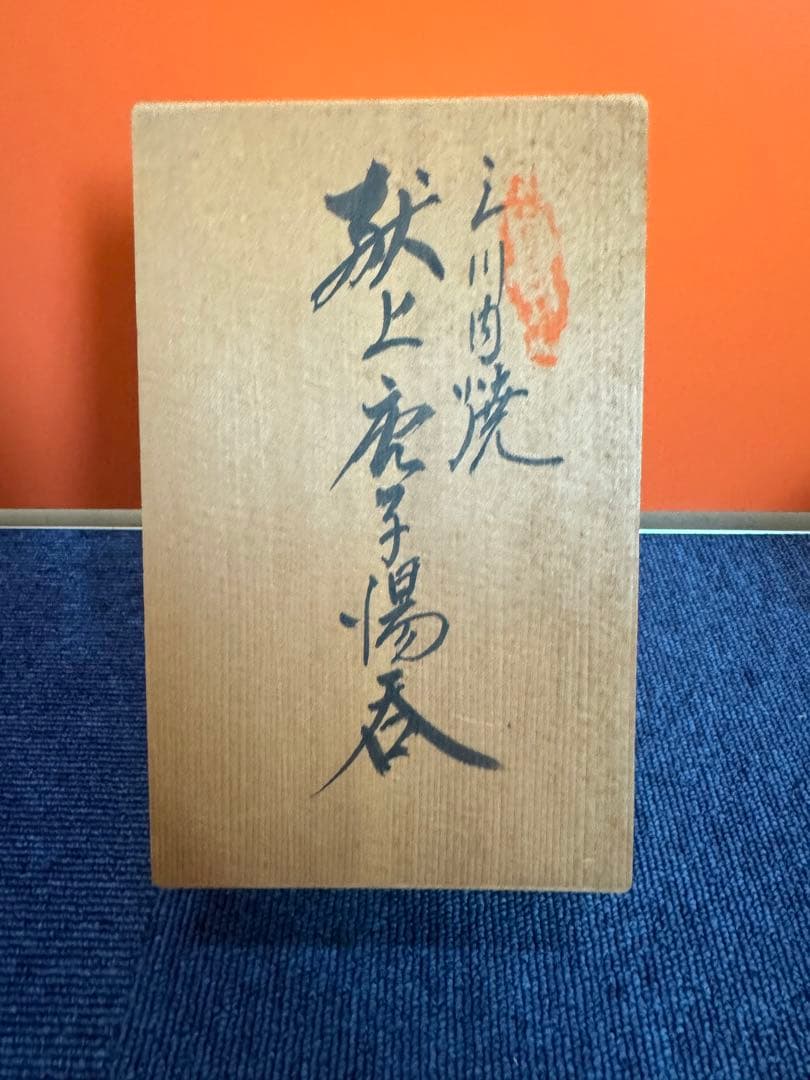 三川内焼
献上唐子湯呑